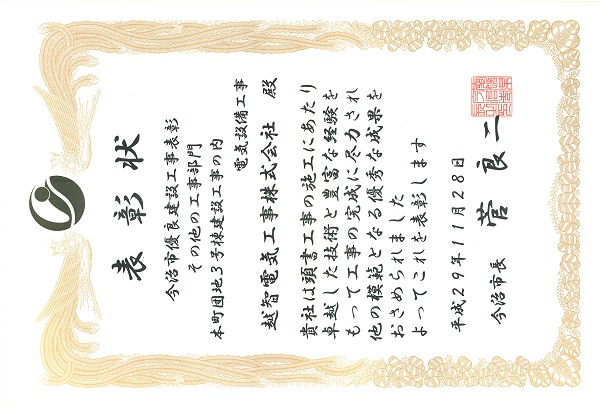 表彰状
今治市優良建設工事表彰
その他の工事部門
本町団地3号棟建設工事の内
電気設備工事
越智電気工事株式会社 殿
貴社は頭書工事の施工にあたり
卓越した技術と豊富な経験を
もって工事の完成に尽力され
他の模範となる優秀な成果を
おさめられました
よってこれを表彰します
平成29年11月28日
今治市長 菅 良二